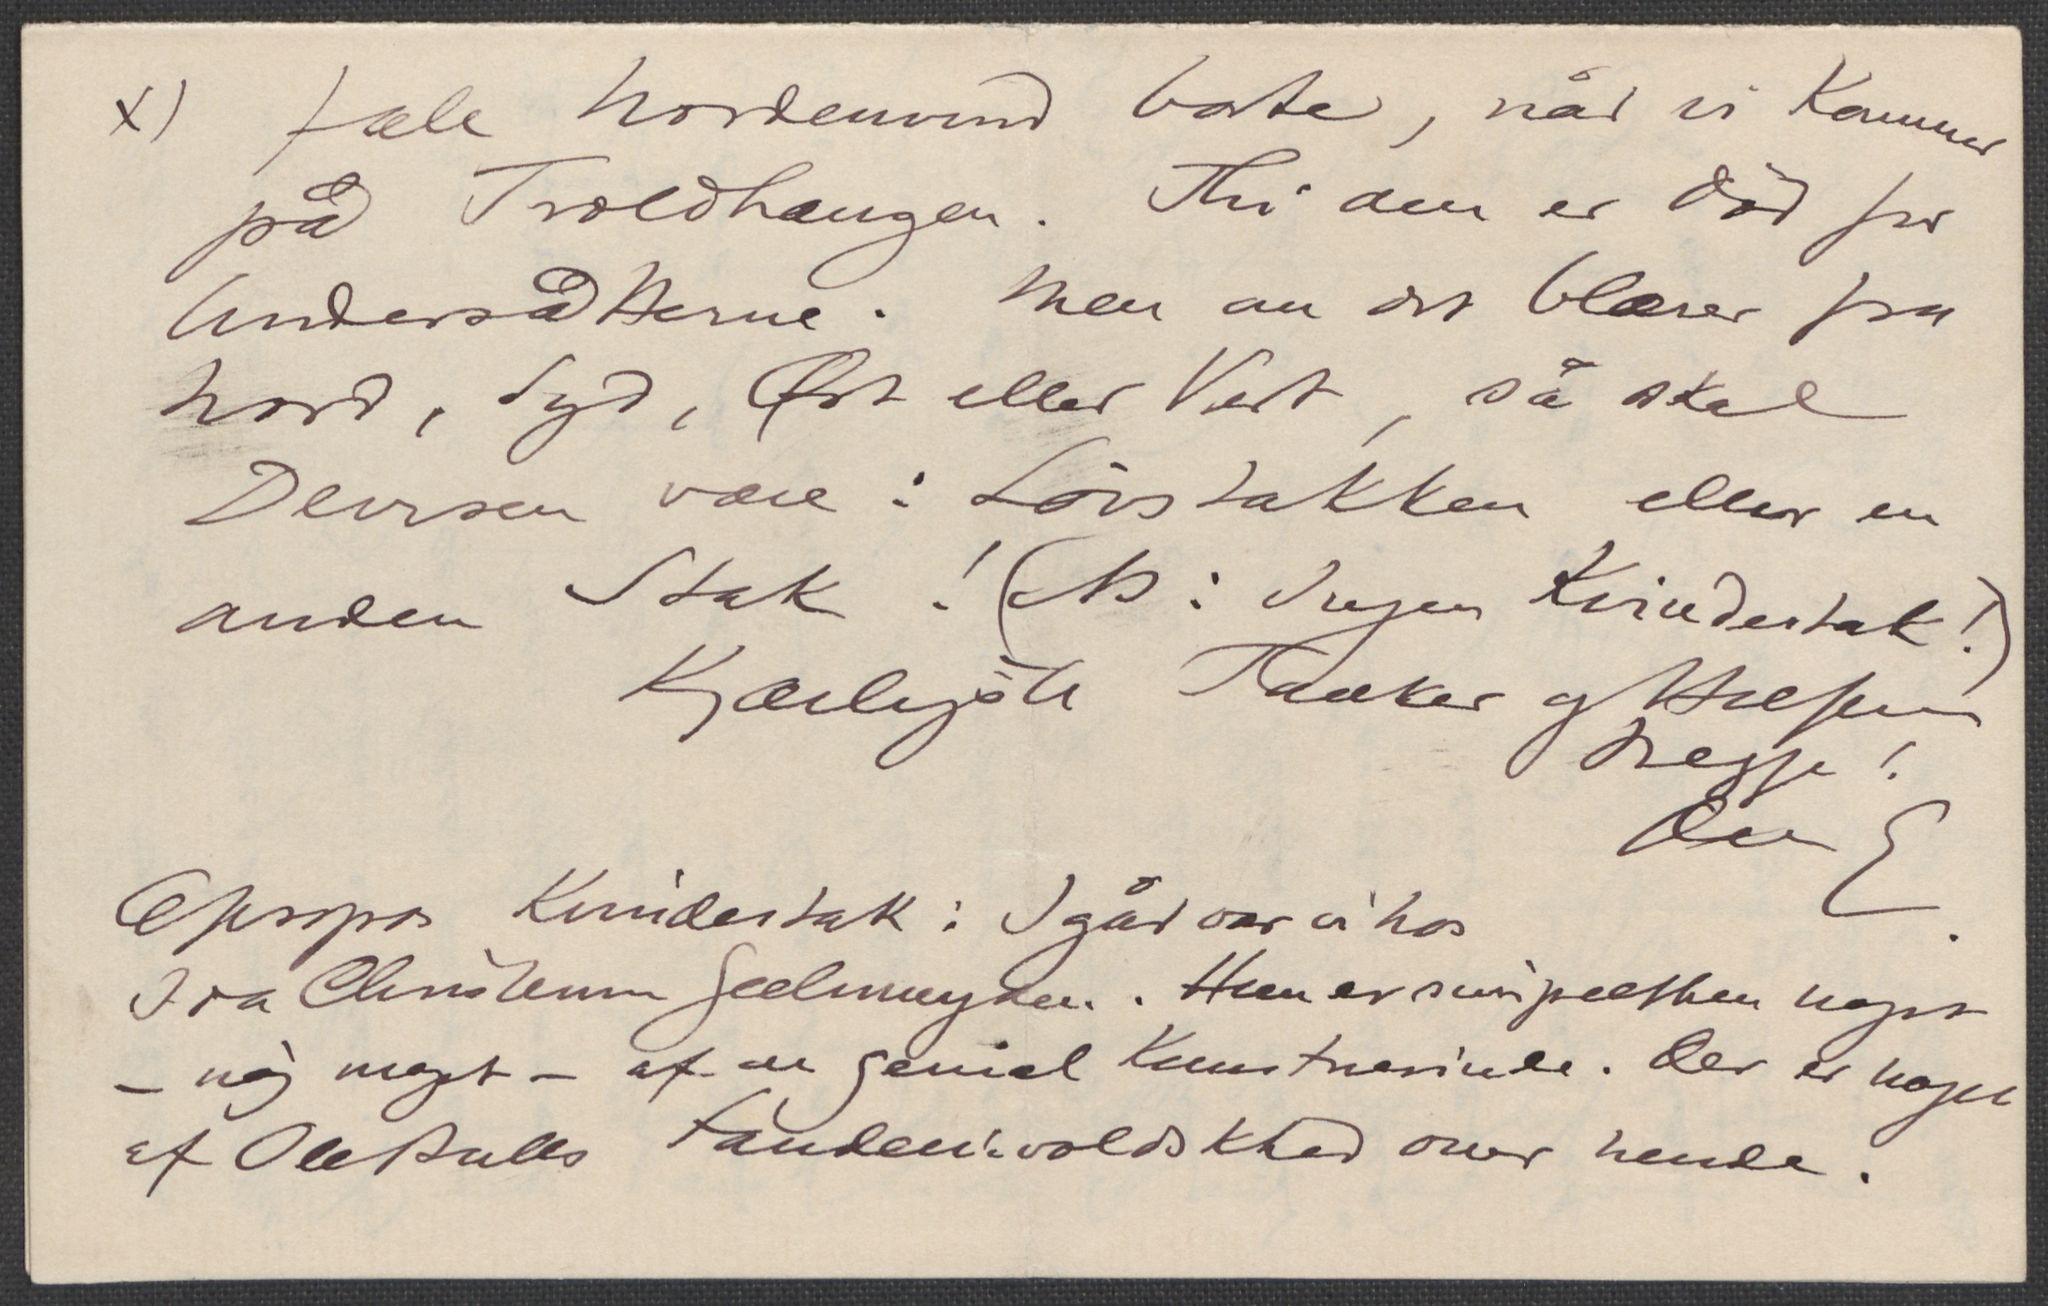 x) fæle Nordenvind borte, når vi kommer
på Troldhaugen. Thi den er død for
Undersåtterne. Men om det blæser fra
Nord, Syd, Øst eller Vest, så skal
Devisen være: Løvstakken eller en
anden Stak! (NB: Ingen Kvindestak!)
Kjærligste Tanker og Hilsener
begge!
Din E.
Apropos Kvindestak: Igår var vi hos
Fra Christenne Geelmuyden. Hun er simpelthen noget
– nej meget – af en genial Kunstnerinde. Der er noget
af Ole Bulls Fandenivoldskhed over hende.